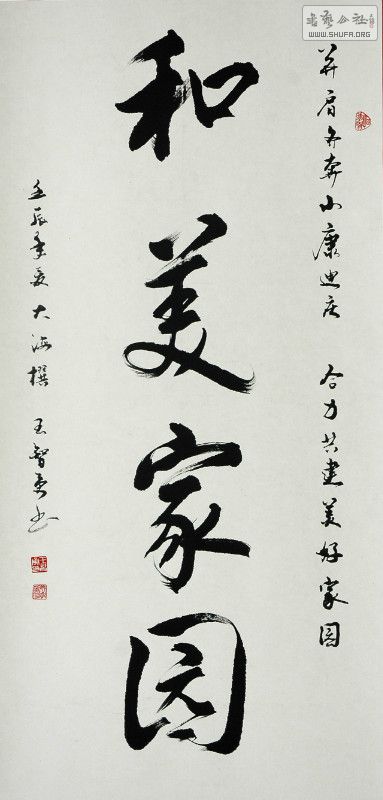 书艺公社
WWW.SHUFA.ORG
并肩争奔小康迎庄 合力共建美好家园
和美家园
壬辰季夏大海撰 王智勇书